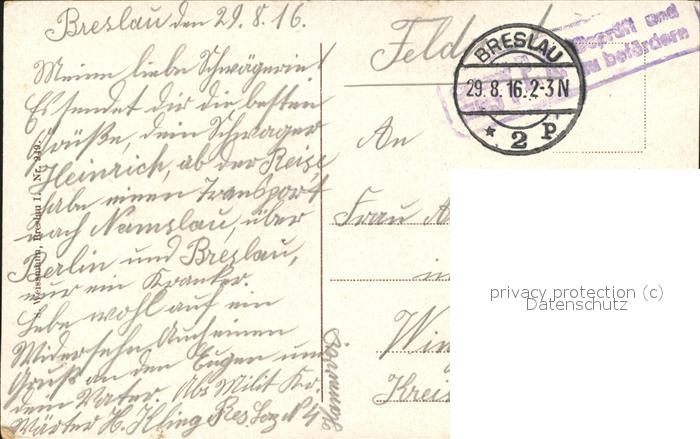 Breslau den 29.8.16.
Meine liebe Schwägerin!
Es sendet dir die besten
Grüße, dein Schwager
Heinrich, ab der Reise
habe einen Transport
nach Namslau, über
Berlin und Breslau,
nur ein Kranker.
Lebe wohl auf ein
Widersehn Auch einen
Gruß an den Eugen und
dem Vater. Abs Milit Kr.
Wärter H. Kling Res. Laz N 4
S. Weissmann, Breslau I. Nr. 249.
BRESLAU
29.8.16.2-3N
* 2 P
Geprüft und
zu befördern
An
Frau A
in
Win
Kreis
privacy protection (c)
Datenschutz